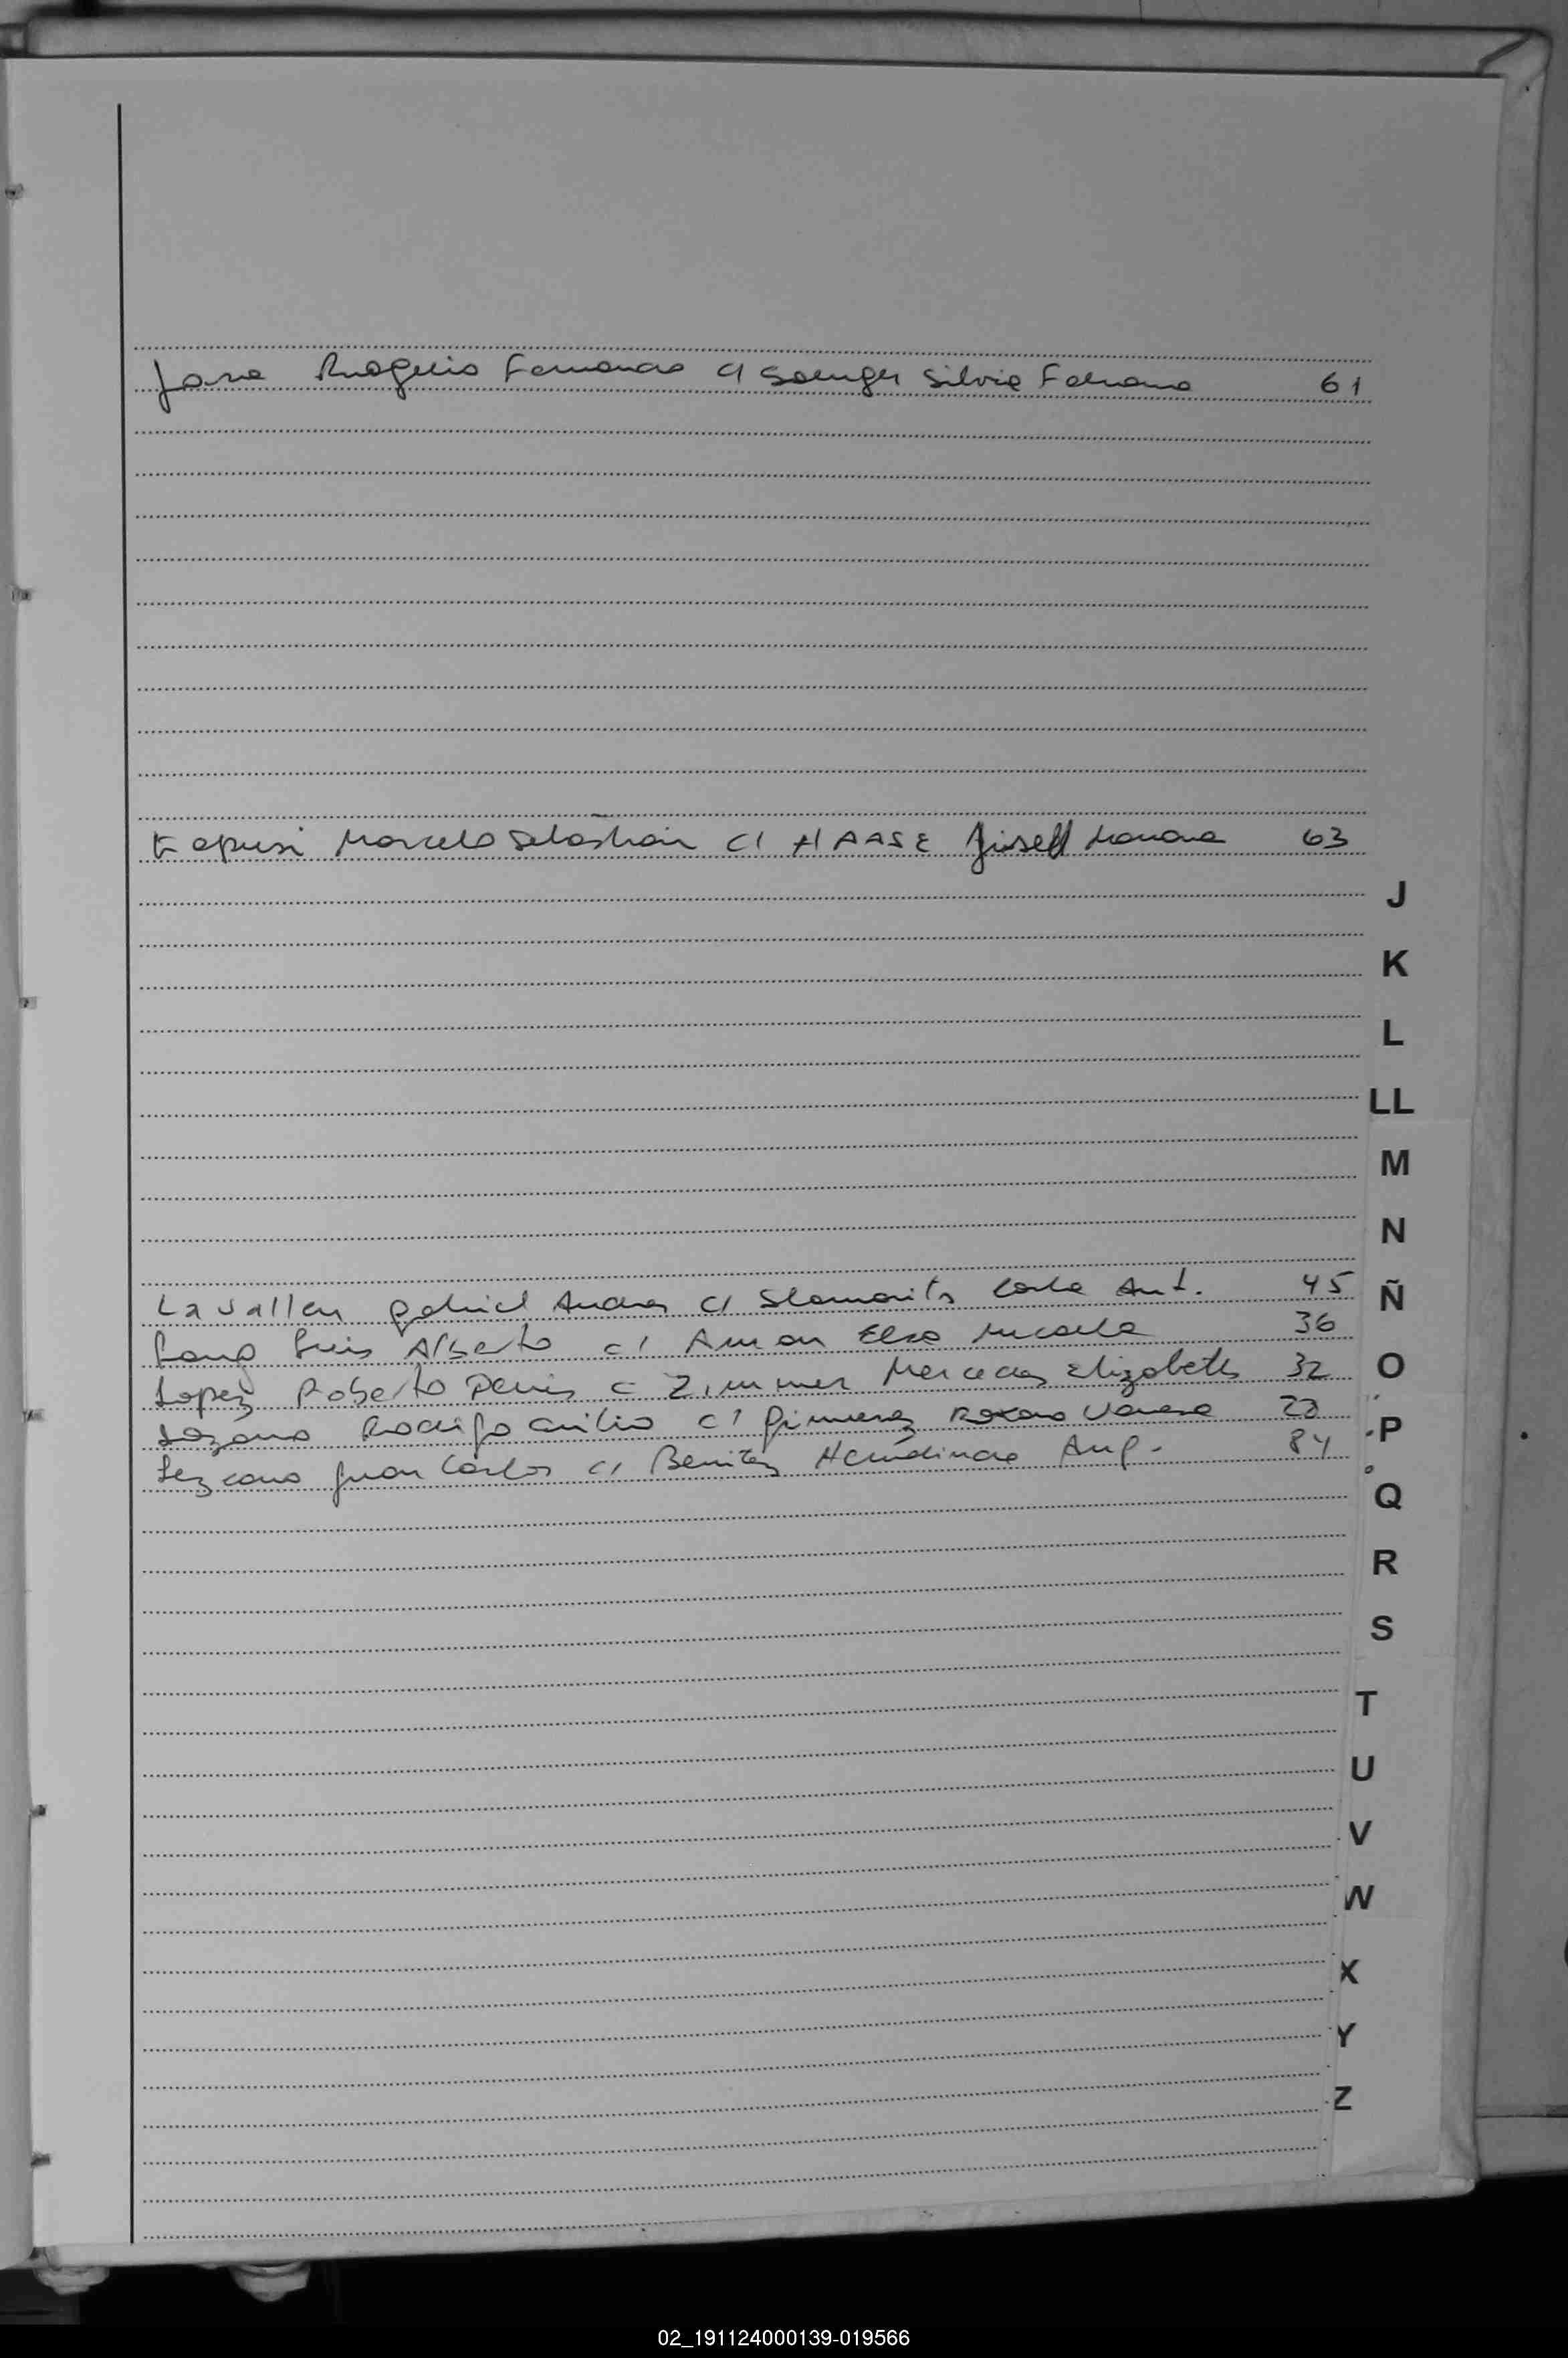 Jara Rogelio Fernando c/ Saenger Silvia Fabiana 61
Kapusi Marcelo Sebastian c/ HAASE Gisell Mariana 63
J
K
L
LL
M
N
Lavallen Gabriel Andres c/ Carla Ant. 45
Ñ
Long Luis Alberto c/ Amon Elsa Micaela 36
Lopez Roberto Denis c Zimmer Mercedes Elizabeth 32
O
Lozano Rodrigo c/ Gimenez Roxana Vanesa 23
P
Lezcano Juan Carlos c/ Benitez 84
Q
R
S
T
U
V
W
X
Y
Z
02_191124000139-019566